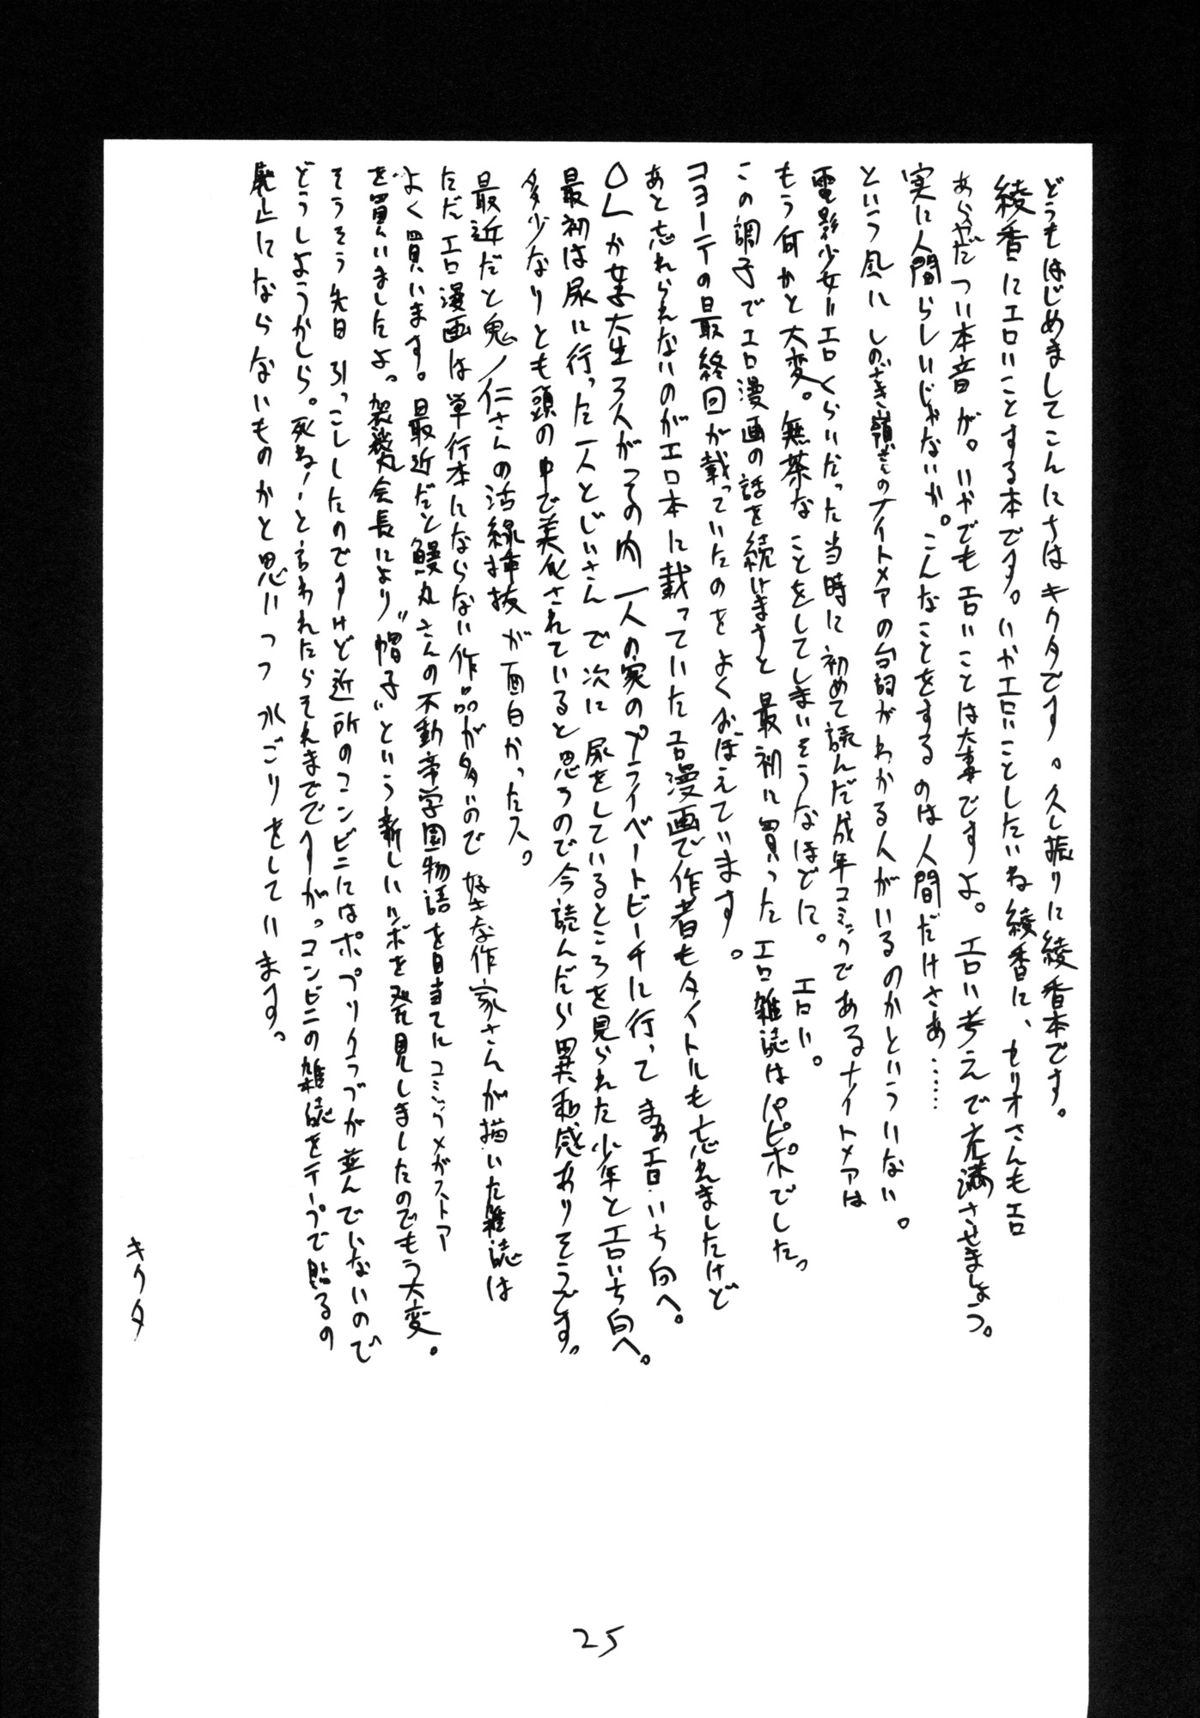 どうもはじめましてこんにちはキクタです。久し振りに綾香本です。
綾香にエロいことする本です。いかエロいことしたいね綾香に、セリオさんもエロ
あらやだつい本音が。いやでもエロいことは大事ですよ。エロい考えで充満させましょう。
実に人間らしいじゃないか。こんなことをするのは人間だけさあ……
という風にしのざき嶺さんのナイトメアの台詞がわかる人がいるのかといういない。
電影少女＝エロくらいだった当時に初めて読んだ成年コミックであるナイトメアは
もう何かと大変。無茶なことをしてしまいそうなほどに。エロい。
この調子でエロ漫画の話を続けますと最初に買ったエロ雑誌はパピポでした。
コヨーテの最終回が載っていたのをよくおぼえています。
あと忘れられないのがエロ本に載っていたエロ漫画で作者もタイトルも忘れましたけど
OLか女子大生3人がその内一人の家のプライベートビーチに行ってまぁエロいち向へ。
最初は尿に行った一人とじいさんで次に尿をしているところを見られた少年とエロいち向へ。
多少なりとも頭の中で美化されていると思うので今読んだら異和感ありそうです。
最近だと鬼ノ仁さんの活線挿抜が面白かったス。
ただエロ漫画は単行本にならない作品が多いので好きな作家さんが描いた雑誌は
よく買います。最近だと鰻丸さんの不動帝学園物語を目当てにコミックメガストア
を買いましたよ。袈裟丸会長により"帽子"という新しいツボを発見しましたのでもう大変。
そうそう先日引っこしたのですけど近所のコンビニにはポプリクラブが並んでいないので
どうしようかしら。死ね！と言われたらそれまでですが。コンビニの雑誌をテープで貼るの
廃止にならないものかと思いつつ水ごりをしています。
キクタ
25